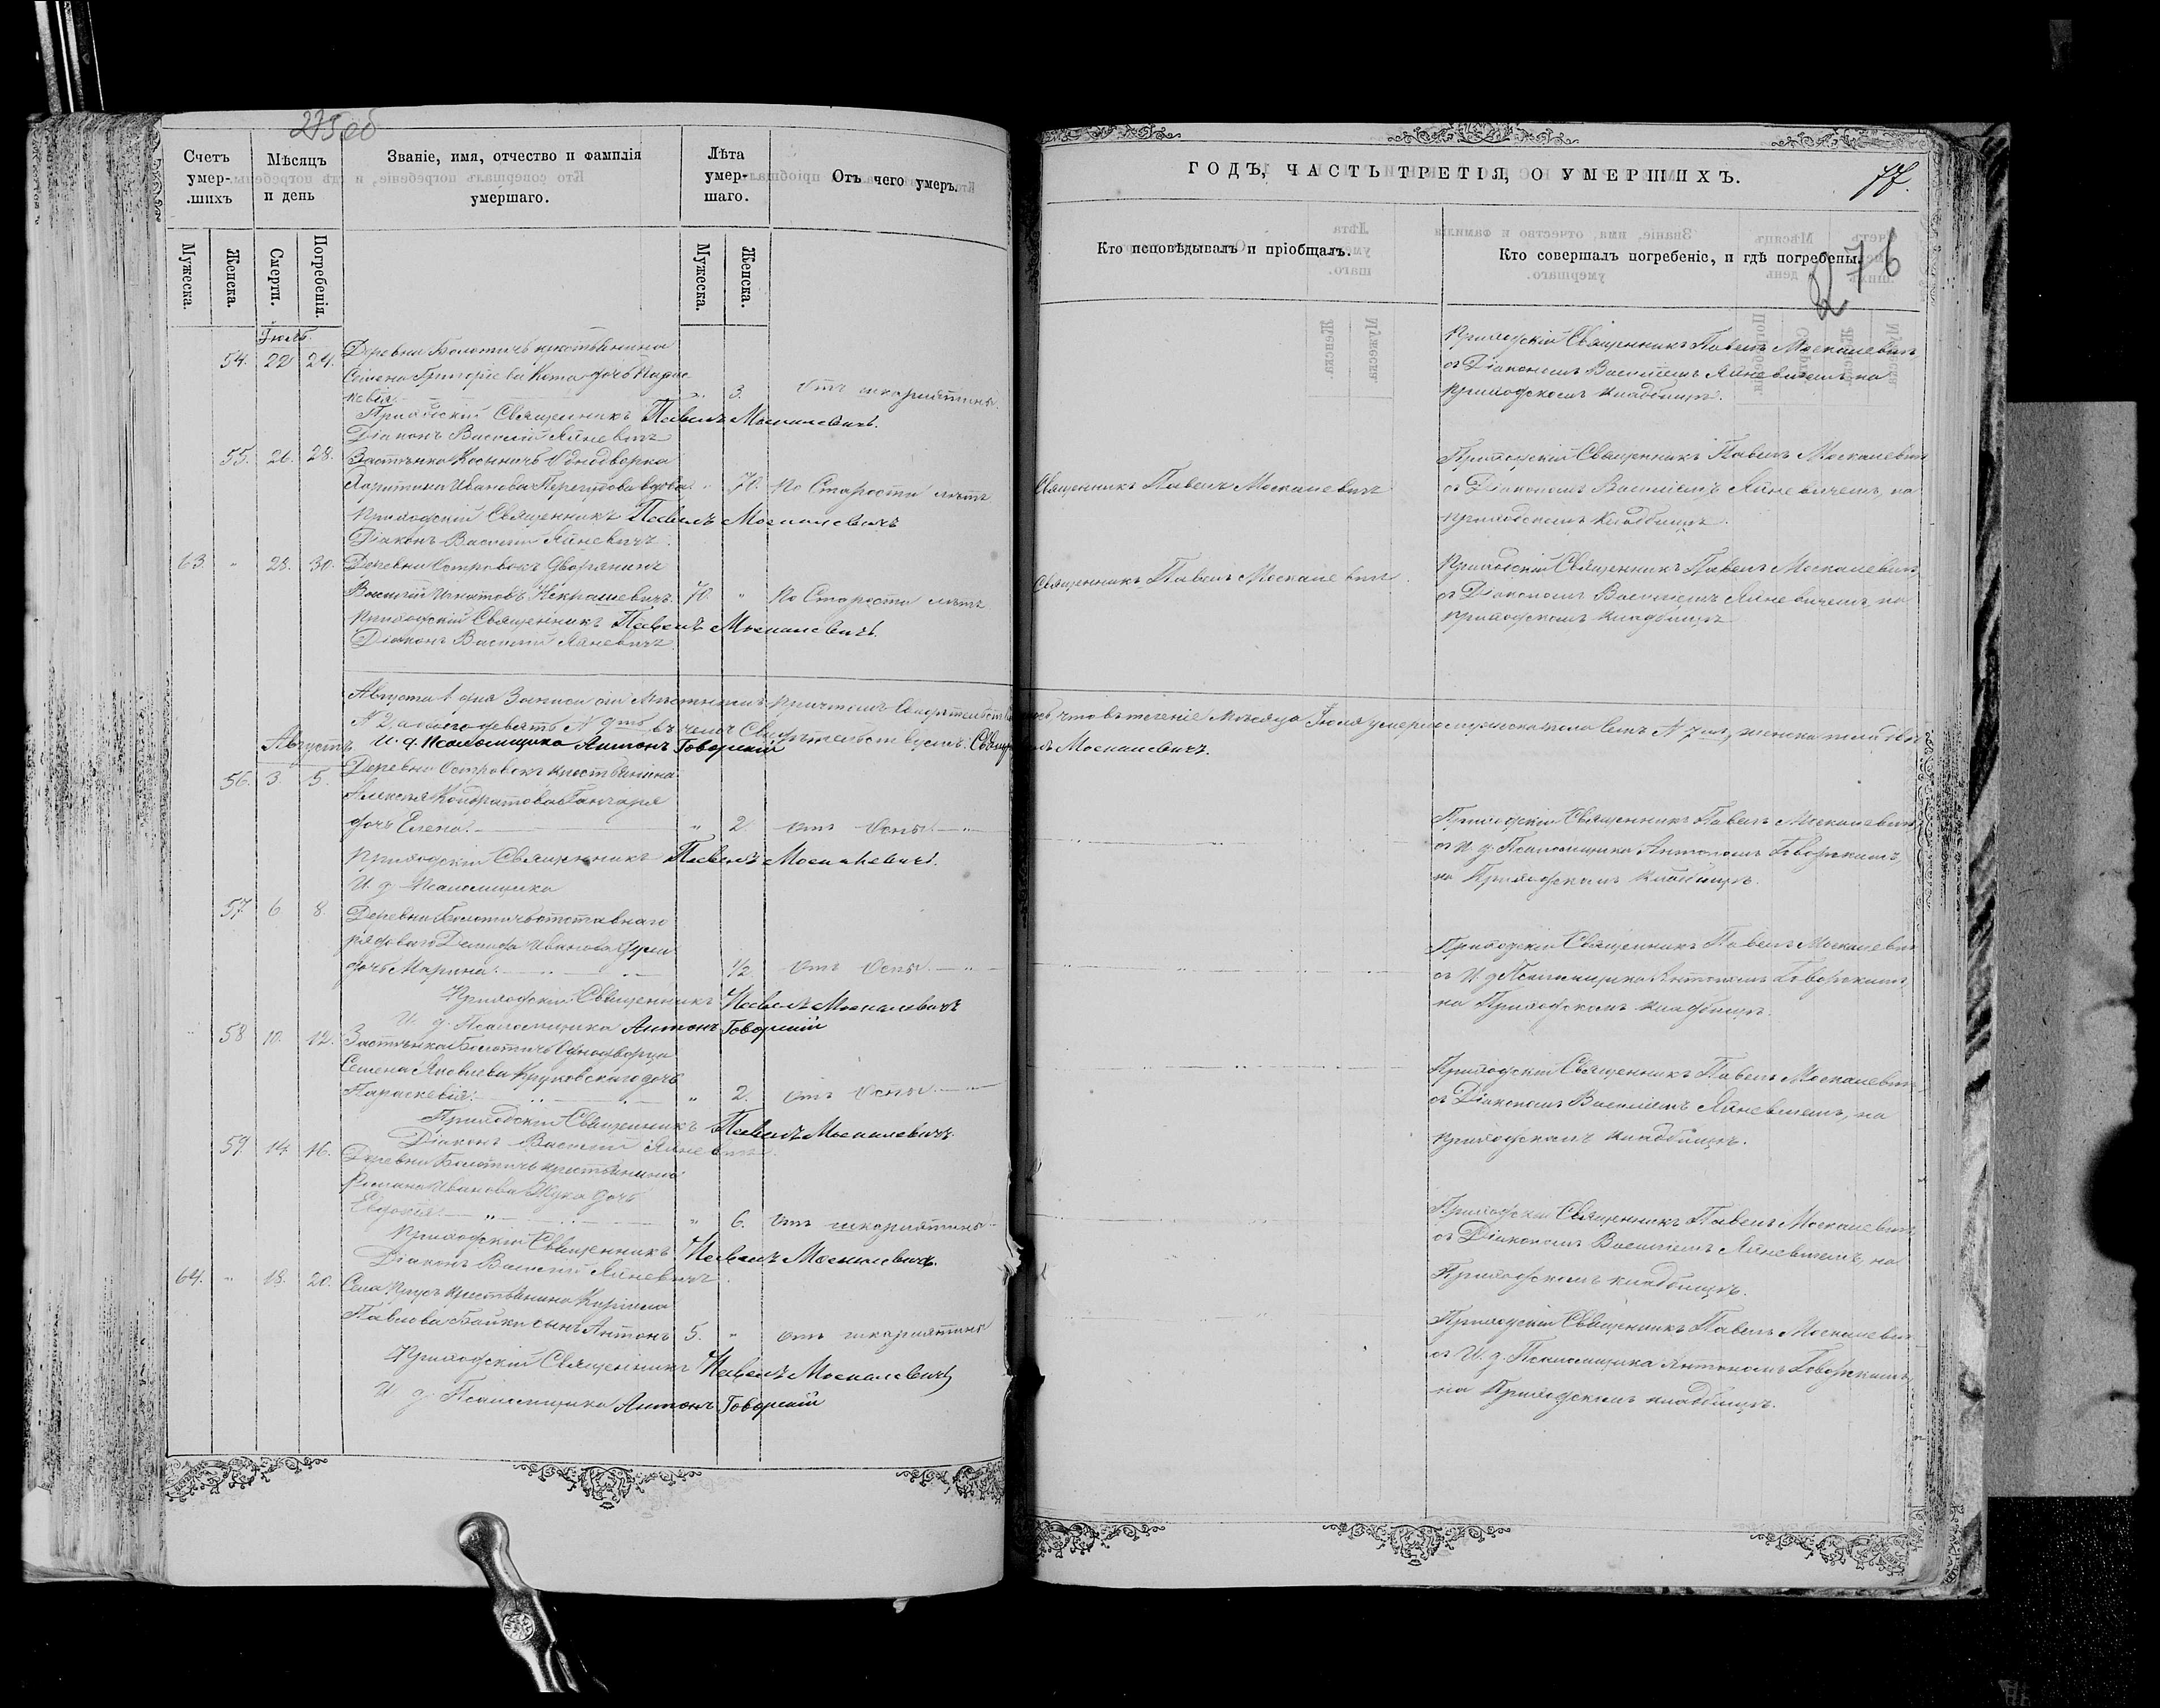 275об
Счетъ умер-.шихъ
Мѣсяцъ и день
Званіе, имя, отчество и фамилія умершаго.
Лѣта умер-шаго.
Отъ чего умеръ.
Мужеска. Женска. Смерти. Погребенія. Мужеска. Женска.
ГОДЪ, ЧАСТЬ ТРЕТІЯ, О УМЕРШИХЪ.
77.
276
Кто исповѣдывалъ и пріобщалъ.
Кто совершалъ погребеніе, и гдѣ погребены.
Іюль.
54. 22 24. Деревни Болотичъ крестьянина
Семена Григорьева дочь Парас-
кевія. „ 3. отъ шкарлятины.
Приходскій Священникъ Павелъ Москалевичъ.
Діаконъ Василій Яйневичъ
Приходскій Священникъ Павелъ Москалевичъ
съ Діакономъ Василіемъ Яйневичемъ на
приходскомъ кладбищѣ.
55. 26. 28. Застѣнка Косыничъ Однодворка
Ивановна вдова „ 70. По Старости лѣтъ
Приходскій Священникъ Павелъ Москалевичъ
Діаконъ Василій Яйневичъ.
Священникъ Павелъ Москалевичъ
Приходскій Священникъ Павелъ Москалевичъ
съ Діакономъ Василіемъ Яйневичемъ, на
приходскомъ кладбищѣ.
63. „ 28. 30. Деревни Островокъ Дворянинъ
Василій Игнатовъ Некрашевичъ. 70. „ По Старости лѣтъ
Приходскій Священникъ Павелъ Москалевичъ.
Діаконъ Василій Яйневичъ.
Священникъ Павелъ Москалевичъ.
Приходскій Священникъ Павелъ Москалевичъ,
съ Діакономъ Василіемъ Яйневичемъ, на
приходскомъ кладбищѣ
Августа 1 дня Записи сіи Мѣстнымъ Причтомъ что въ теченіе Мѣсяца Іюля умерло мужеска пола
въ чемъ Свидѣтельствуемъ: Москалевичъ.
И. д. Псаломщика Антонъ Говорскій
Августъ
56. 3. 5. Деревни Островокъ крестьянина
Алексѣя Кондратова
дочь Елена. „ 2. отъ Оспы.
Приходскій Священникъ Павелъ Москалевичъ.
И. д. Псаломщика
Приходскій Священникъ Павелъ Москалевичъ
съ И. д. Псаломщика Антономъ Говорскимъ,
на Приходскомъ кладбищѣ.
57. 6. 8. Деревни Болотичъ отставнаго
рядоваго Демида Иванова
дочь Марина. 1/2 отъ Оспы.
Приходскій Священникъ Павелъ Москалевичъ
И. д. Псаломщика Антонъ Говорскій
Приходскій Священникъ Павелъ Москалевичъ
съ И. д. Псаломщика Антономъ Говорскимъ,
на Приходскомъ кладбищѣ.
58 10. 12. Застѣнка Болотичъ Однодворца
Семена Яковлева Круковскаго дочь
Параскевія. „ 2. отъ Оспы.
Приходскій Священникъ Павелъ Москалевичъ.
Діаконъ Василій Яйневичъ.
Приходскій Священникъ Павелъ Москалевичъ
съ Діакономъ Василіемъ Яйневичемъ, на
приходскомъ кладбищѣ.
59. 14. 16. Деревни Болотичъ крестьянина
Романа Иванова Жука дочь
Евдокія. „ 6. отъ шкарлятины
Приходскій Священникъ Павелъ Москалевичъ.
Діаконъ Василій Яйневичъ.
Приходскій Священникъ Павелъ Москалевичъ,
съ Діакономъ Василіемъ Яйневичемъ, на
Приходскомъ кладбищѣ.
64. „ 18. 20. Села крестьянина Кирилла
Павлова Бойки сынъ Антонъ 5. „ отъ шкарлятины
Приходскій Священникъ Павелъ Москалевичъ
И. д. Псаломщика Антонъ Говорскій
Приходскій Священникъ Павелъ Москалевичъ
съ И. д. Псаломщика Антономъ Говорскимъ,
на Приходскомъ кладбищѣ.